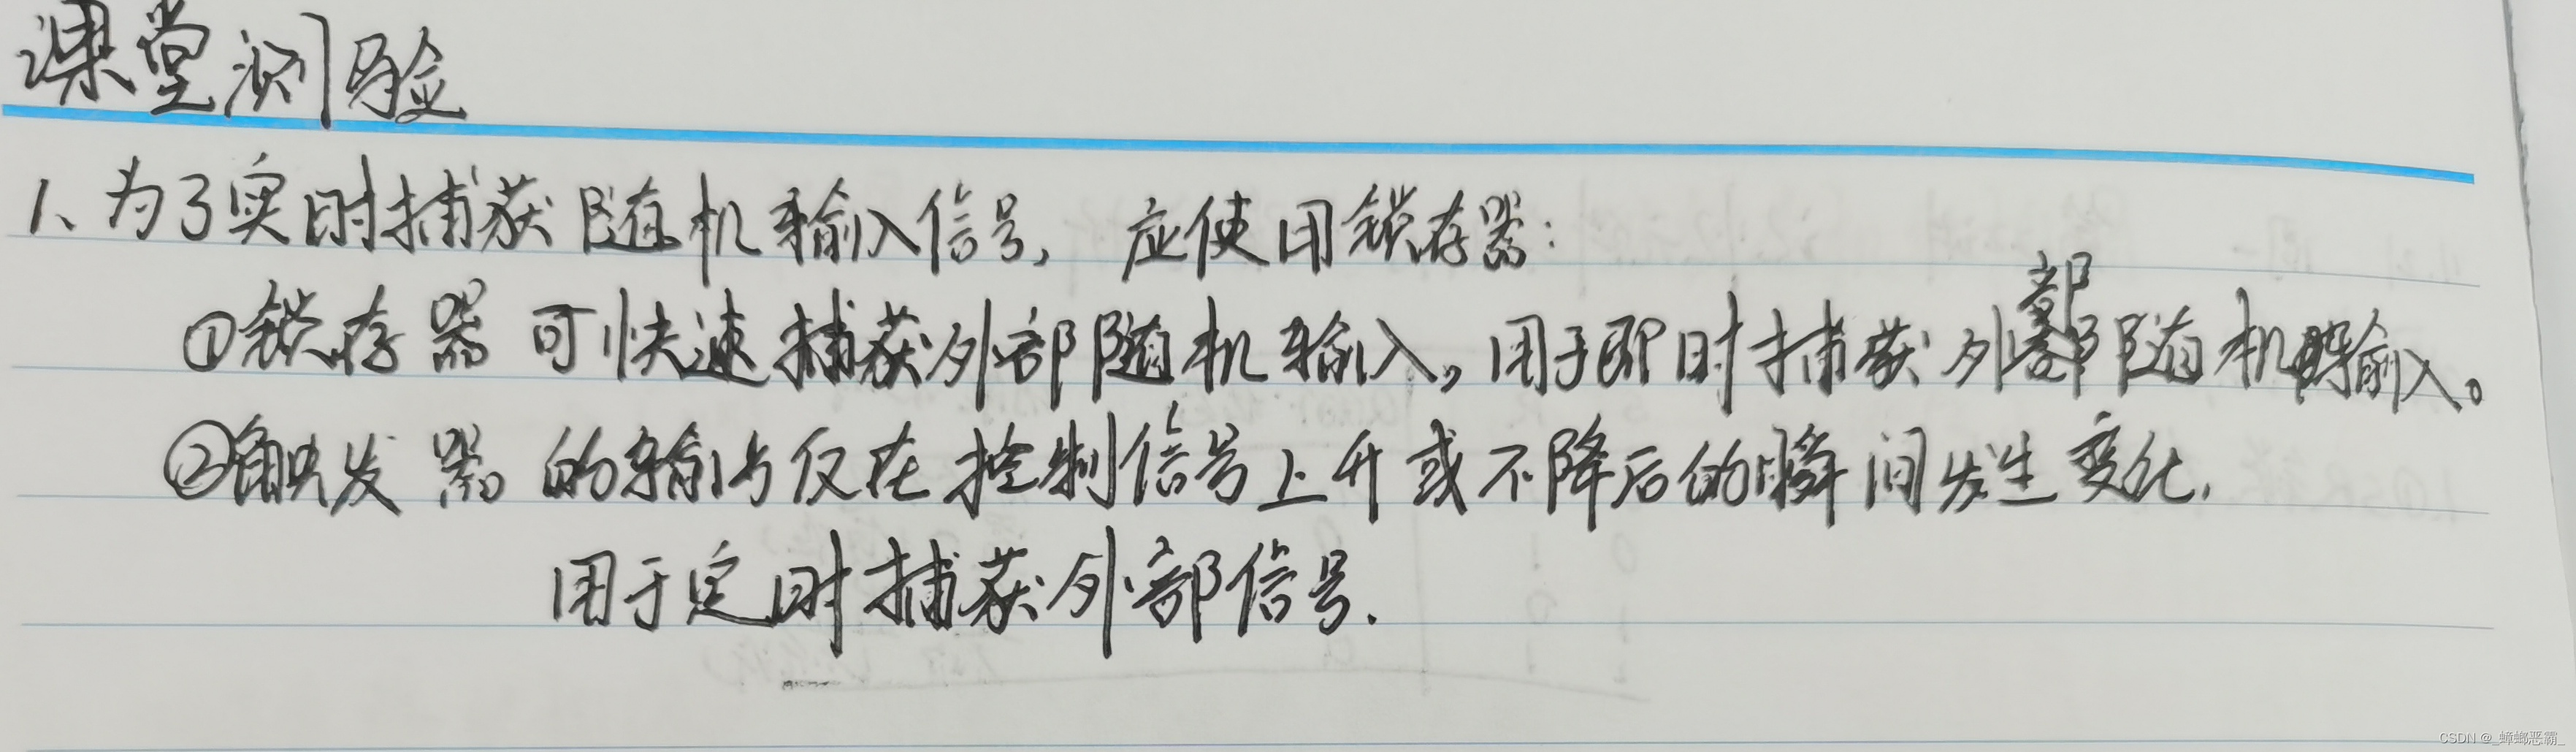 课堂测验
1、为了实时捕获随机输入信号，应使用锁存器：
①锁存器可快速捕获外部随机输入。用于即时捕获外部随机输入。
②触发器的输出仅在控制信号上升或下降后的瞬间发生变化，
用于定时捕获外部信号.
CSDN @_蟑螂恶霸_